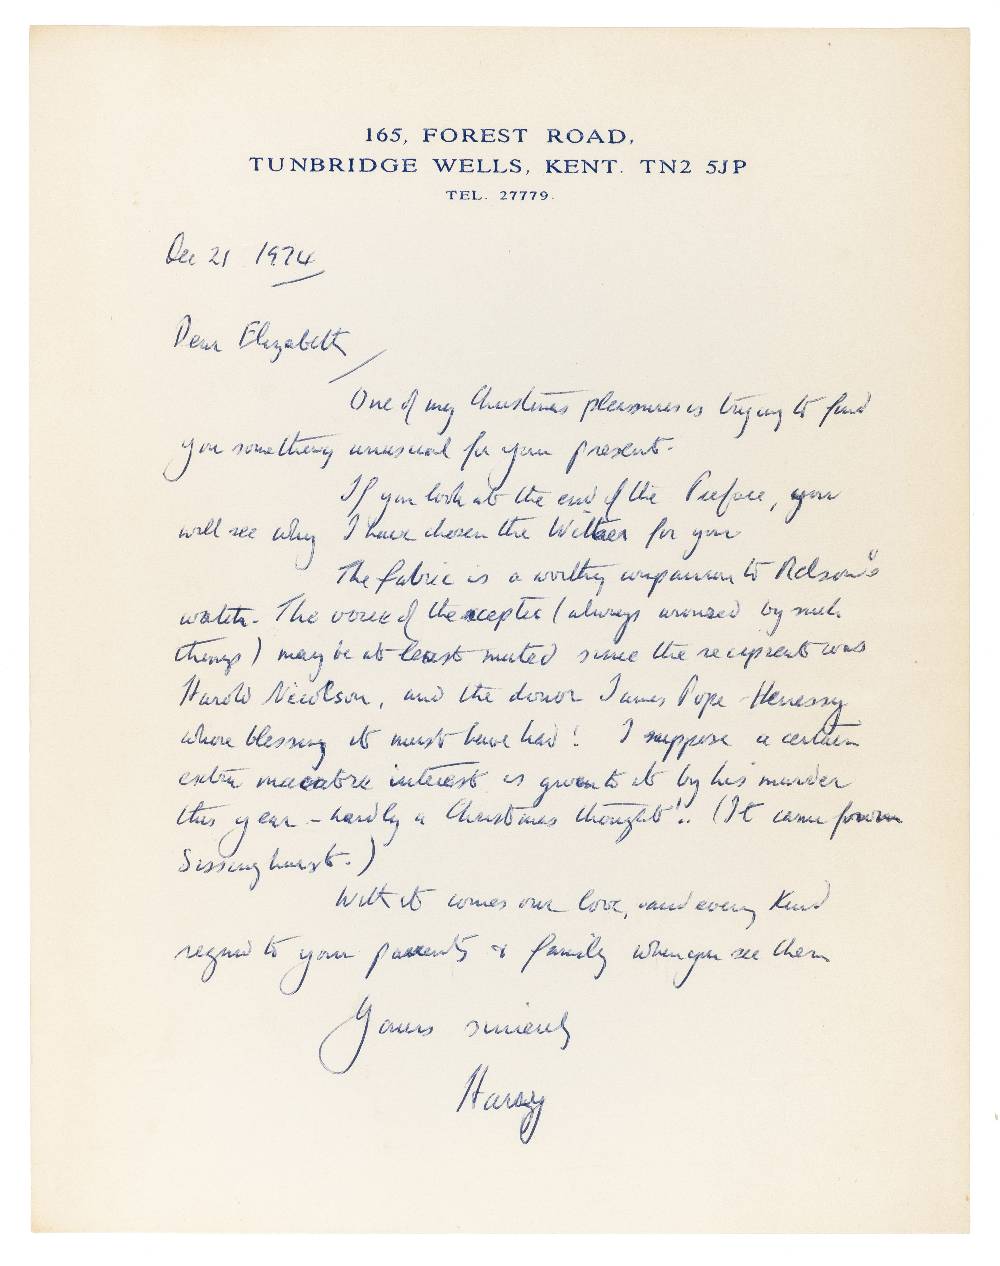 165, FOREST ROAD,
TUNBRIDGE WELLS, KENT. TN2 5JP
TEL. 27779.
Dec 21 1974
Dear Elizabeth
One of my Christmas pleasures is trying to find
you something unusual for your present.
If you look at the end of the Preface, you
will see why I have chosen the for you
The fabric is a worthy companion to Nelson's
watch. The voice of the sceptic (always aroused by such
things) may be at least muted since the recipient was
Harold Nicolson, and the donor James Pope-Henessy
whose blessing it must have had! I suppose a certain
extra macabre interest is given to it by his murder
this year - hardly a Christmas thought!! (It came from
Sissinghurst.)
With it comes our love, and every kind
regard to your parents & family when you see them
Yours sincerely